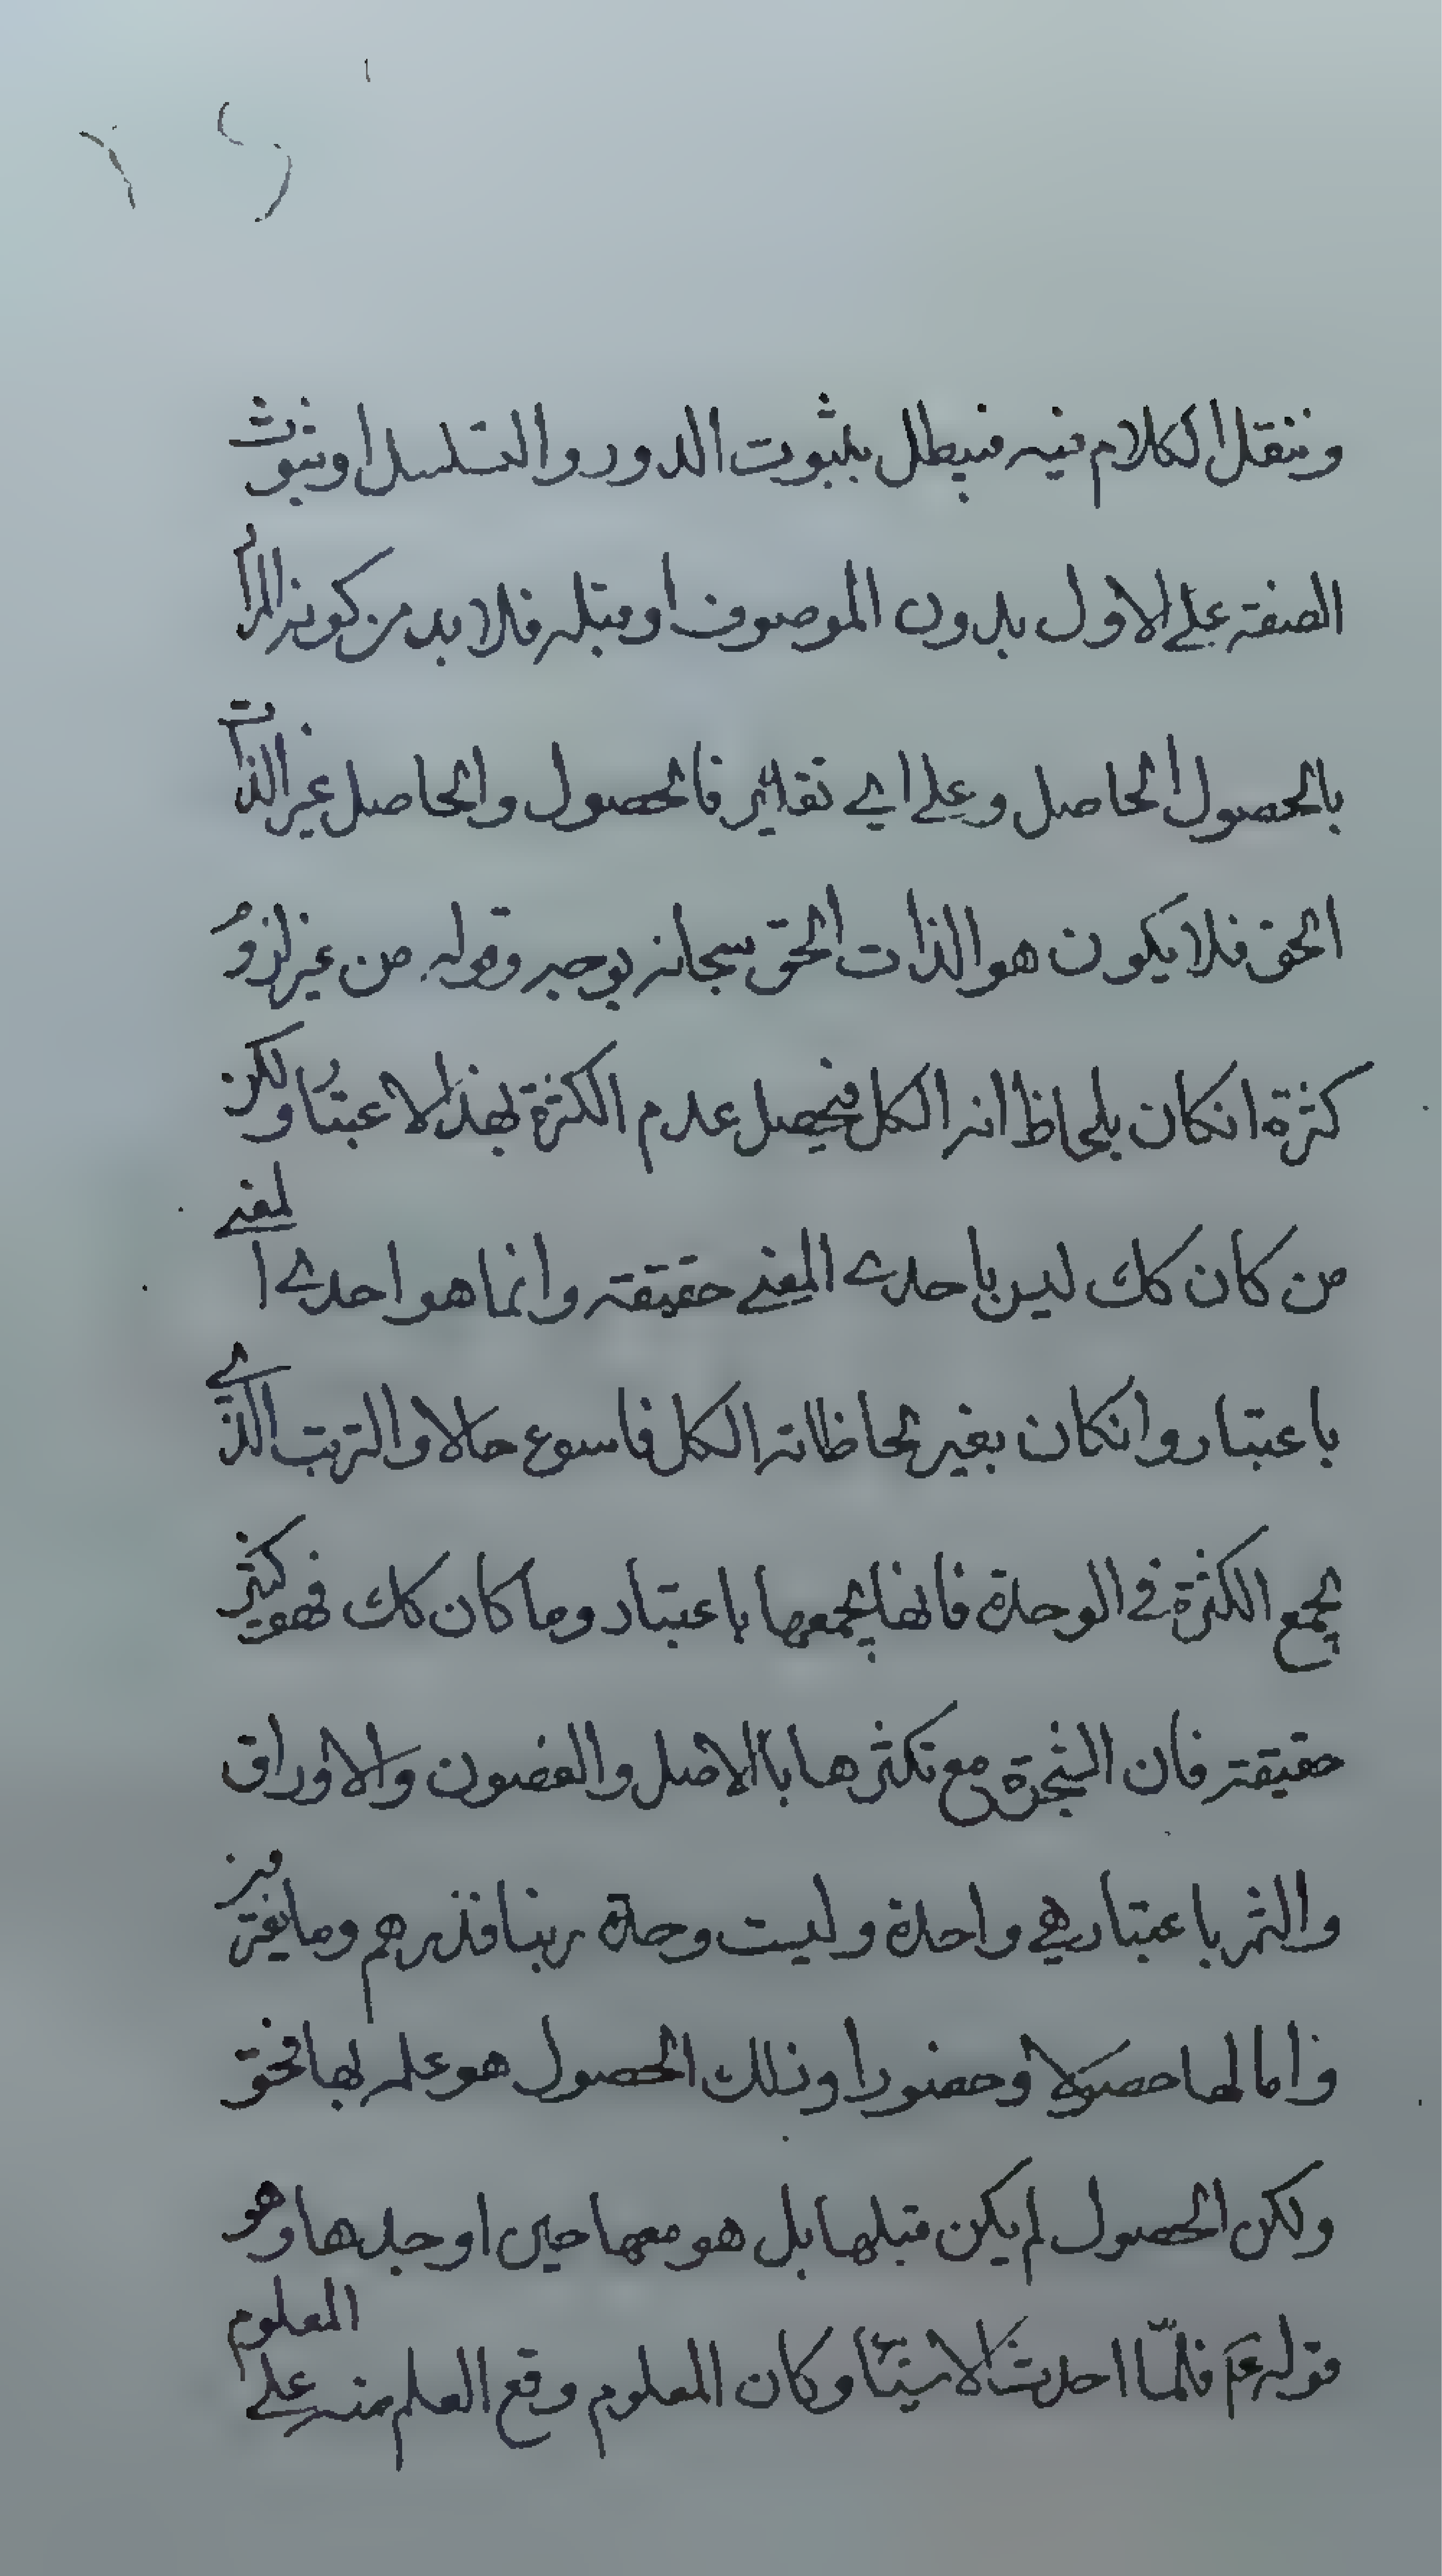 وننقل الكلام فيه فيبطل بثبوت الدور والتسلسل او ثبوت
الصفة على الاول بدون الموصوف او قبله فلا بد من كونه المراد
بالحصول الحاصل وعلى اي تقدير فالحصول والحاصل غير الذات
الحق فلا يكون هو الذات الحق سبحانه بوجه وقوله من غير لزوم
كثرة انكان بلحاظ انه الكل فيحصل عدم الكثرة بهذا الاعتبار ولكن
من كان كك ليس باحدي المعنى حقيقة وانما هو احدي المعنى
باعتبار وانكان بغير لحاظ انه الكل فاسوء حالا والترتب الذي
يجمع الكثرة في الوحدة فانها يجمعها باعتبار وما كان كك فهو كثير
حقيقة فان الشجرة مع تكثرها باالاصل والغصون والاوراق
والثمر باعتبار هي واحدة وليست وحدة ربنا فذرهم وما يفترون
واما لها حصولا وحضورا وذلك الحصول هو علمه بها فحق
ولكن الحصول لم يكن قبلها بل هو معها حين اوجدها وهو
قوله عم فلمّا احدث الاشيئا وكان المعلوم وقع العلم منه على المعلوم